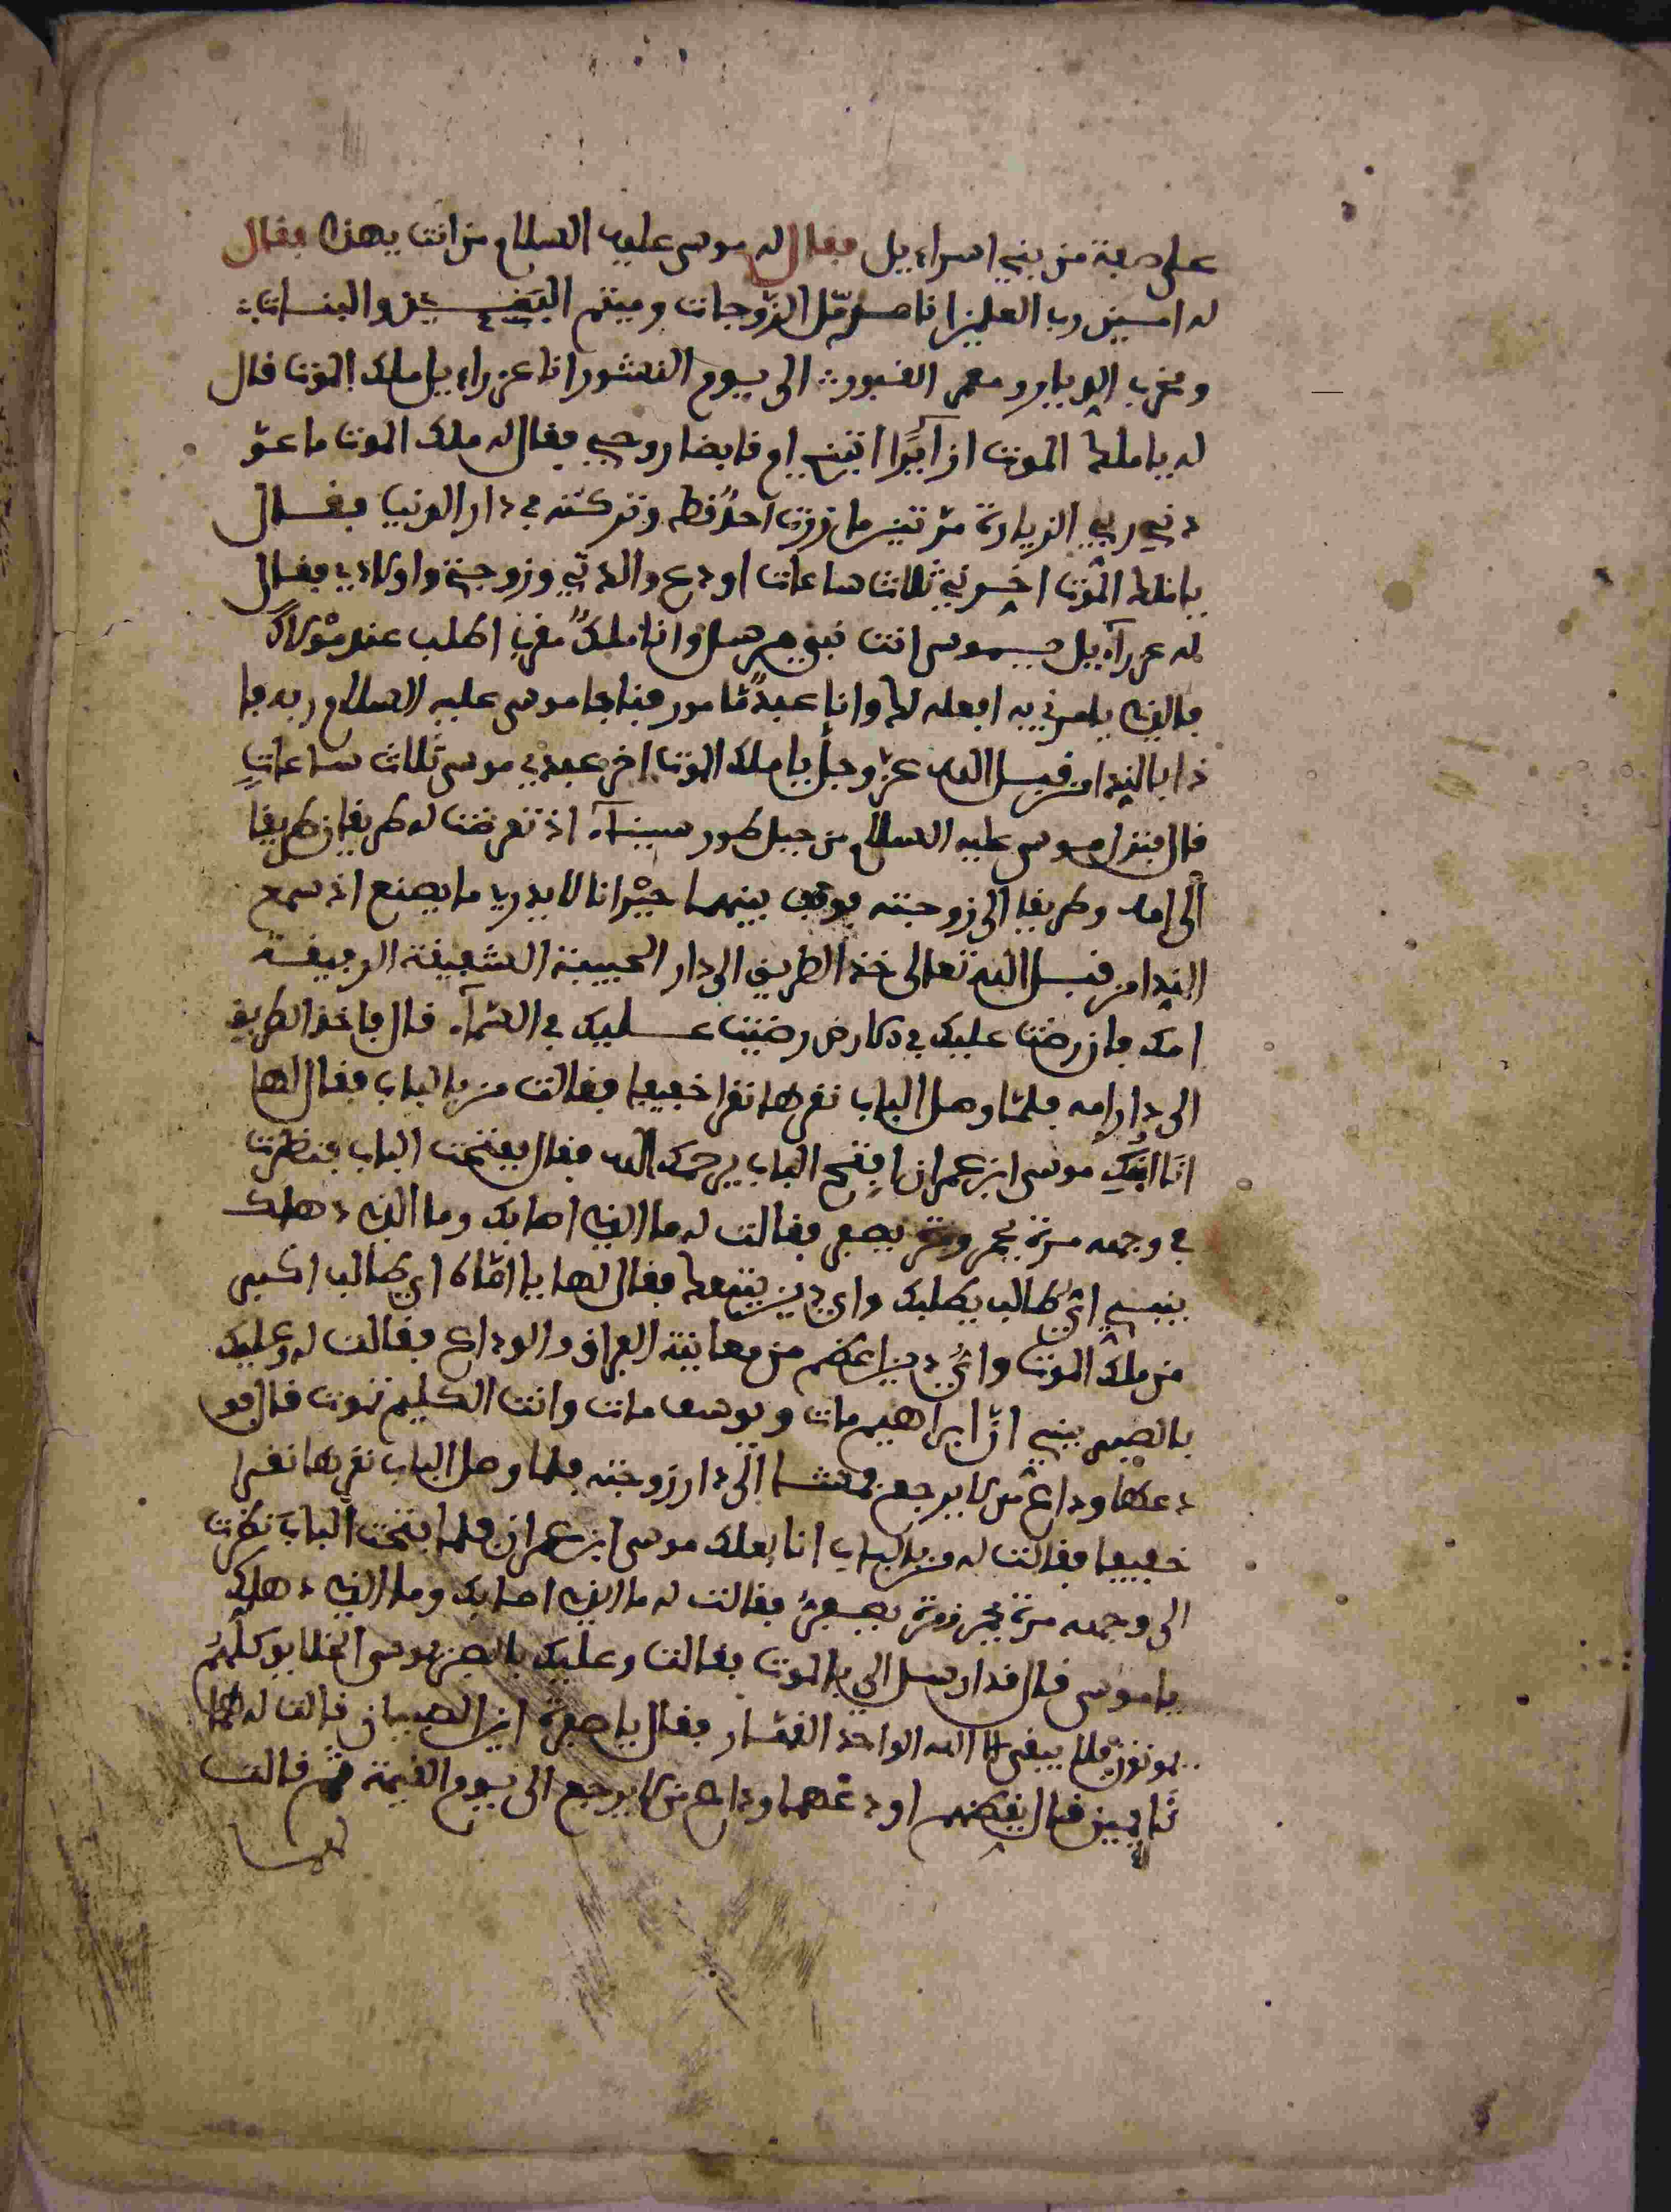 على صفة من بني اسراءيل فقال له موسى عليه السلام من انت يهذا فقال
له امين رب العلمين انا مرمّل الزّوجات وميتم البنين والبنات
ومخرب الديار ومعمر القبور الى يوم النشور انا عزراءيل ملك الموت قال
له يا ملك الموت ازآئرًا اتيتني ام قابضا روحي فقال له ملك الموت ما عوّ
دني ربي الزيارة مرّتين ما زرت احدًا قط وتركته في دار الدنيا فقال
يا ملك الموت اخرني ثلاث ساعات اودع والدتي وزوجتي واولادي فقال
له عزرآءيل يموسى انت نبي مرسل وانا ملكٌ مقرب اطلب عند مولاك
فالذي يامرني به افعله لك وانا عبدٌ مامور فناجا موسى عليه السلام ربه فا
ذا بالندا من قبل الله عزّ وجلّ يا ملك الموت اخر عبدي موسى ثلاث ساعات
قال فنزل موسى عليه السلام من جبل طور سينآء اذ تعرضت له طريقان طريقا
الى امه وطريقا الى زوجته فوقف بينهما حيْرانا لا يدري ما يصنع اذ سمع
الندا من قبل الله تعالى خذ الطريق الى دار الحبيبة الشفيقة الرفيقة
امك فان رضت عليك في الارض رضيت عليك في السّمآء قال فاخذ الطريق
الى دار امه فلمّا وصل الباب نقرها نقرا خفيفا فقالت من بالباب فقال لها
انا ابنك موسى ابن عمران افتح الباب يرحمك الله فقال ففتحت الباب فنظرت
في وجهه مرة يحمر ومرة يصفر فقالت له ما الذي اصابك وما الذي دهاك
يبني ايّ طالب يطلبك واي دين يتبعك فقال لها يا امّاه اي طالب اكبر
من ملك الموت وايُّ دين اعظم من معاينة الفراق والوداع فقالت له وعليك
بالصبر يبني انّ ابراهيم مات ويوسف مات وانت الكليم تموت قال فو
دعها وداع من لا يرجع فمشا الى دار زوجته فلما وصل الباب نقرها نقرا
خفيفا فقالت له من بالباب انا بعلك موسى ابن عمران فلما فتحت الباب نظرت
الى وجهه مرة يحمر ومرة يصفر فقالت له ما الذي اصابك وما الذي دهاك
يا موسى قال قد ارسل الي بالموت فقالت وعليك بالصبر يموسى الخلايق كلّهم
يموتون فلم يبقى الا الله الواحد القهّار فقال يا صفرة اين الصبيان قالت له هما
نايمين قال ايقظهم اودعهما وداع من لا يرجع الى يوم القيمة قم قالت
لهما